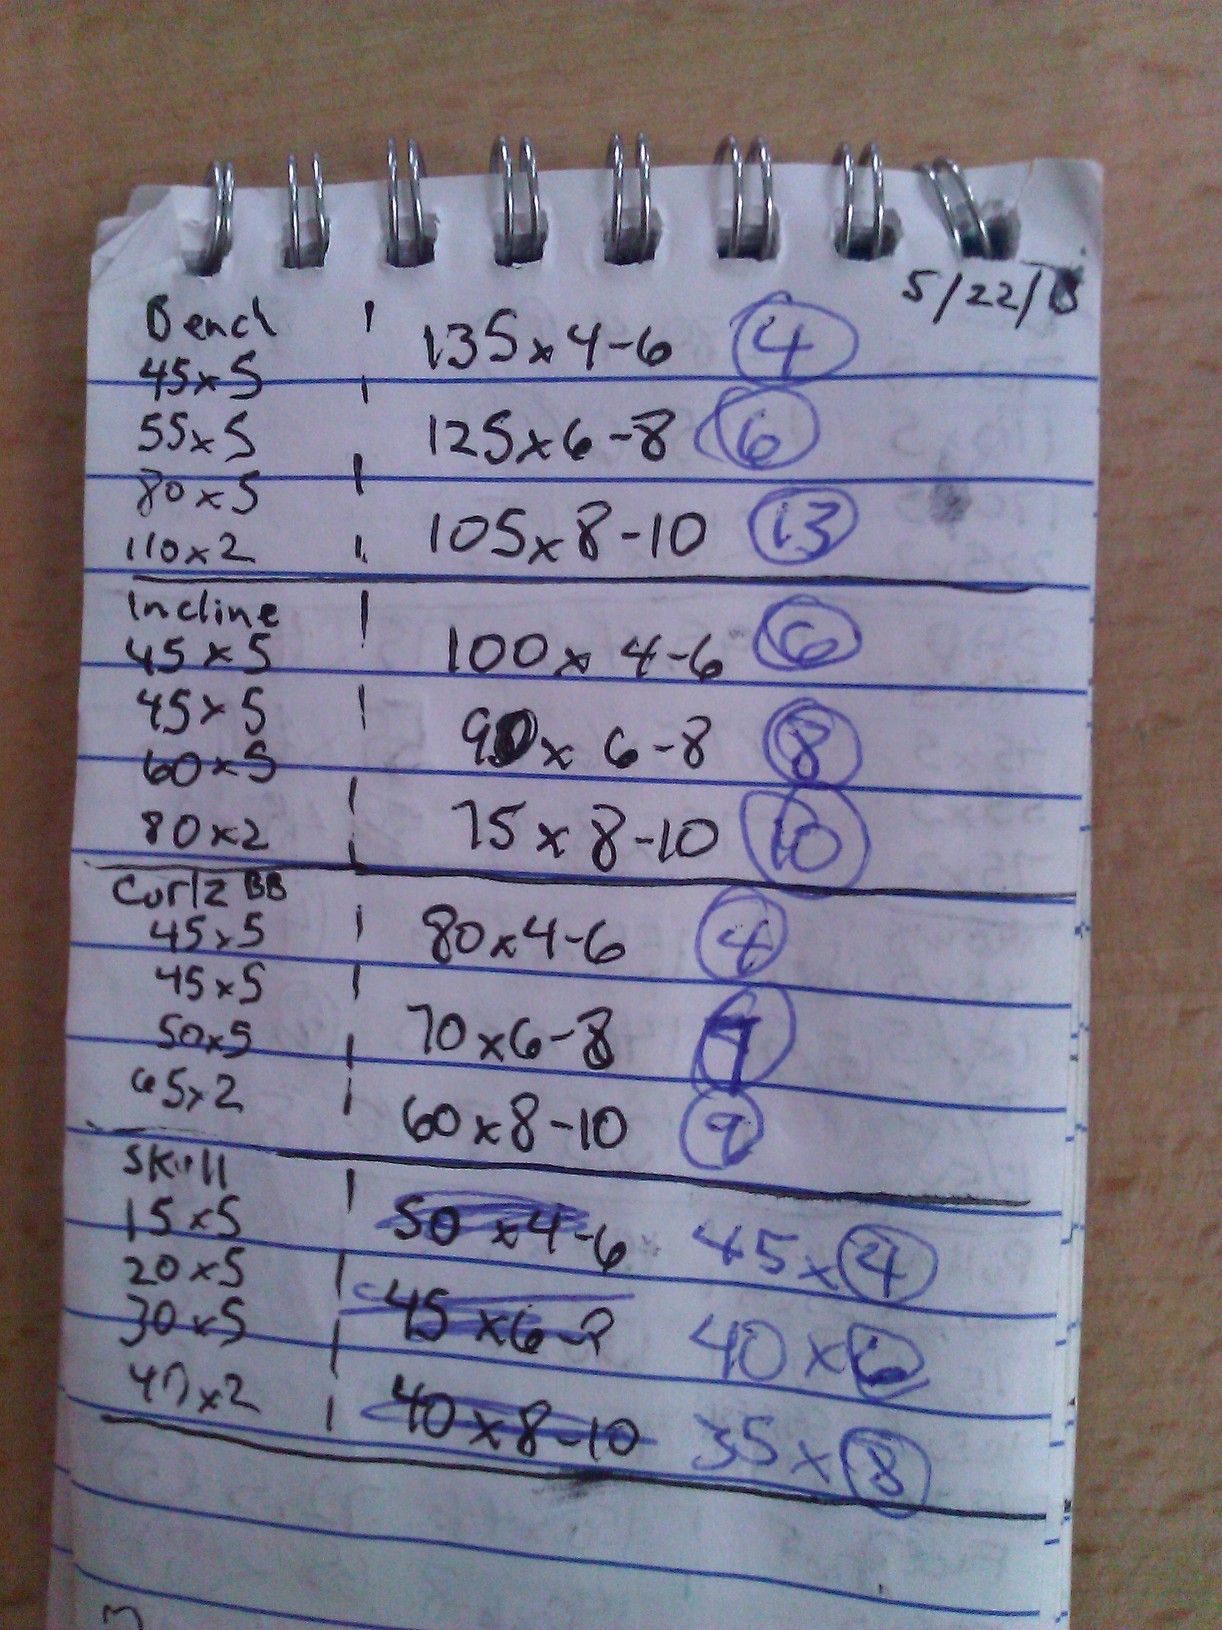 5/22/13
Bench
45x5
135x4-6 4
55x5
125x6-8 6
80x5
110x2
105x8-10 13
Incline
45x5
100x4-6 6
45x5
90x6-8 8
60x5
80x2
75x8-10 10
Curlz BB
45x5
80x4-6 4
45x5
70x6-8 7
50x5
65x2
60x8-10 9
Skull
15x5
50x4-6 45x4
20x5
45x6-8 40x6
30x5
40x2
40x8-10 35x8